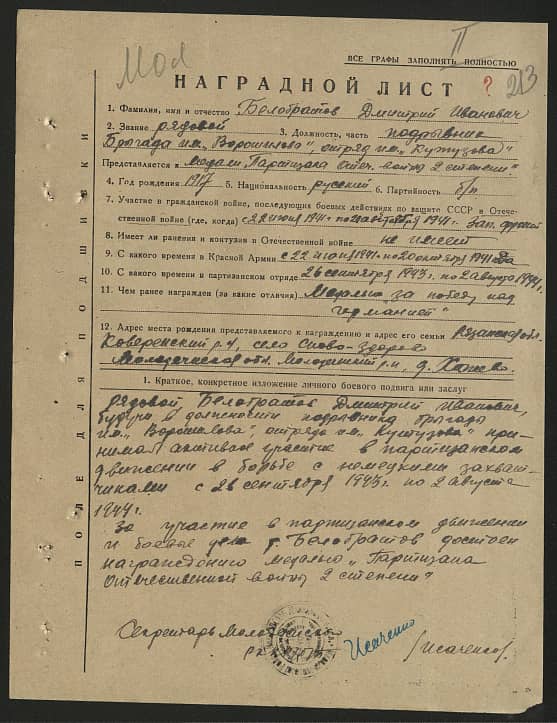 II
ВСЕ ГРАФЫ ЗАПОЛНЯТЬ ПОЛНОСТЬЮ
Мол
НАГРАДНОЙ ЛИСТ ? 213
1. Фамилия, имя и отчество Белобратов Дмитрий Иванович
2. Звание рядовой 3. Должность, часть подрывник
Бригада им. „Ворошилова", отряд им. „Кутузова"
Представляется к медали „Партизана Отеч. войны 2 степени".
4. Год рождения 1917 5. Национальность русский 6. Партийность б/п
7. Участие в гражданской войне, последующих боевых действиях по защите СССР и Отече-
ственной войне (где, когда) с 22 июня 1941 по 1941г. Зап. фронт
8. Имеет ли ранения и контузии в Отечественной войне не имеет
9. С какого времени в Красной Армии с 22 июня 1941г по 20 октября 1941 года
10. С какого времени в партизанском отряде 26 сентября 1943г. по 2 августа 1944г.
11. Чем ранее награжден (за какие отличия) Медалью „за победу над
германией"
12. Адрес места рождения представляемого к награждению и адрес его семьи Рязанская обл.
р-н, село
Молодечненская обл. р-н, д.
1. Краткое, конкретное изложение личного боевого подвига или заслуг
рядовой Белобратов Дмитрий Иванович,
будучи в должности подрывника бригады
им. „Ворошилова", отряда им. „Кутузова" при-
нимал активное участие в партизанском
движении в борьбе с немецкими захват-
чиками с 26 сентября 1943г. по 2 августа
1944г.
За участие в партизанском движении
и боевые дела т. Белобратов достоен
награждению медалью „Партизана
Отечественной войны 2 степени"
Секретарь
РК
Исаченко /Исаченко/
ПОЛЕ ДЛЯ ПОДШИВКИ